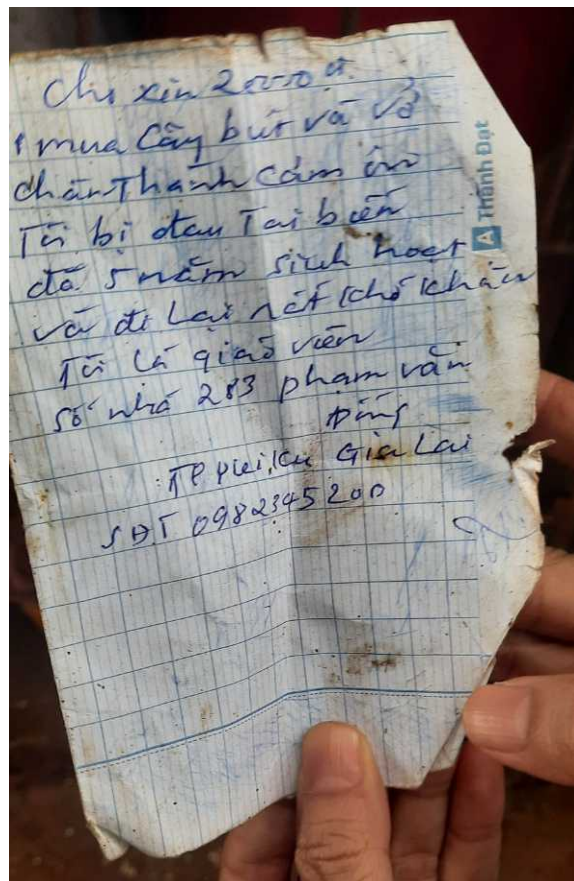 Cho xin 20000 đ
mua Cây bút và vở
chân Thành cảm ơn
Tôi bị đau Tai biến
đã 5 năm sinh hoạt
và đi Lại rất khó khăn
Tôi là giáo viên
Số nhà 283 phạm văn
Đồng
TP pleiku Gia Lai
SĐT 0982345200
Thành Đạt